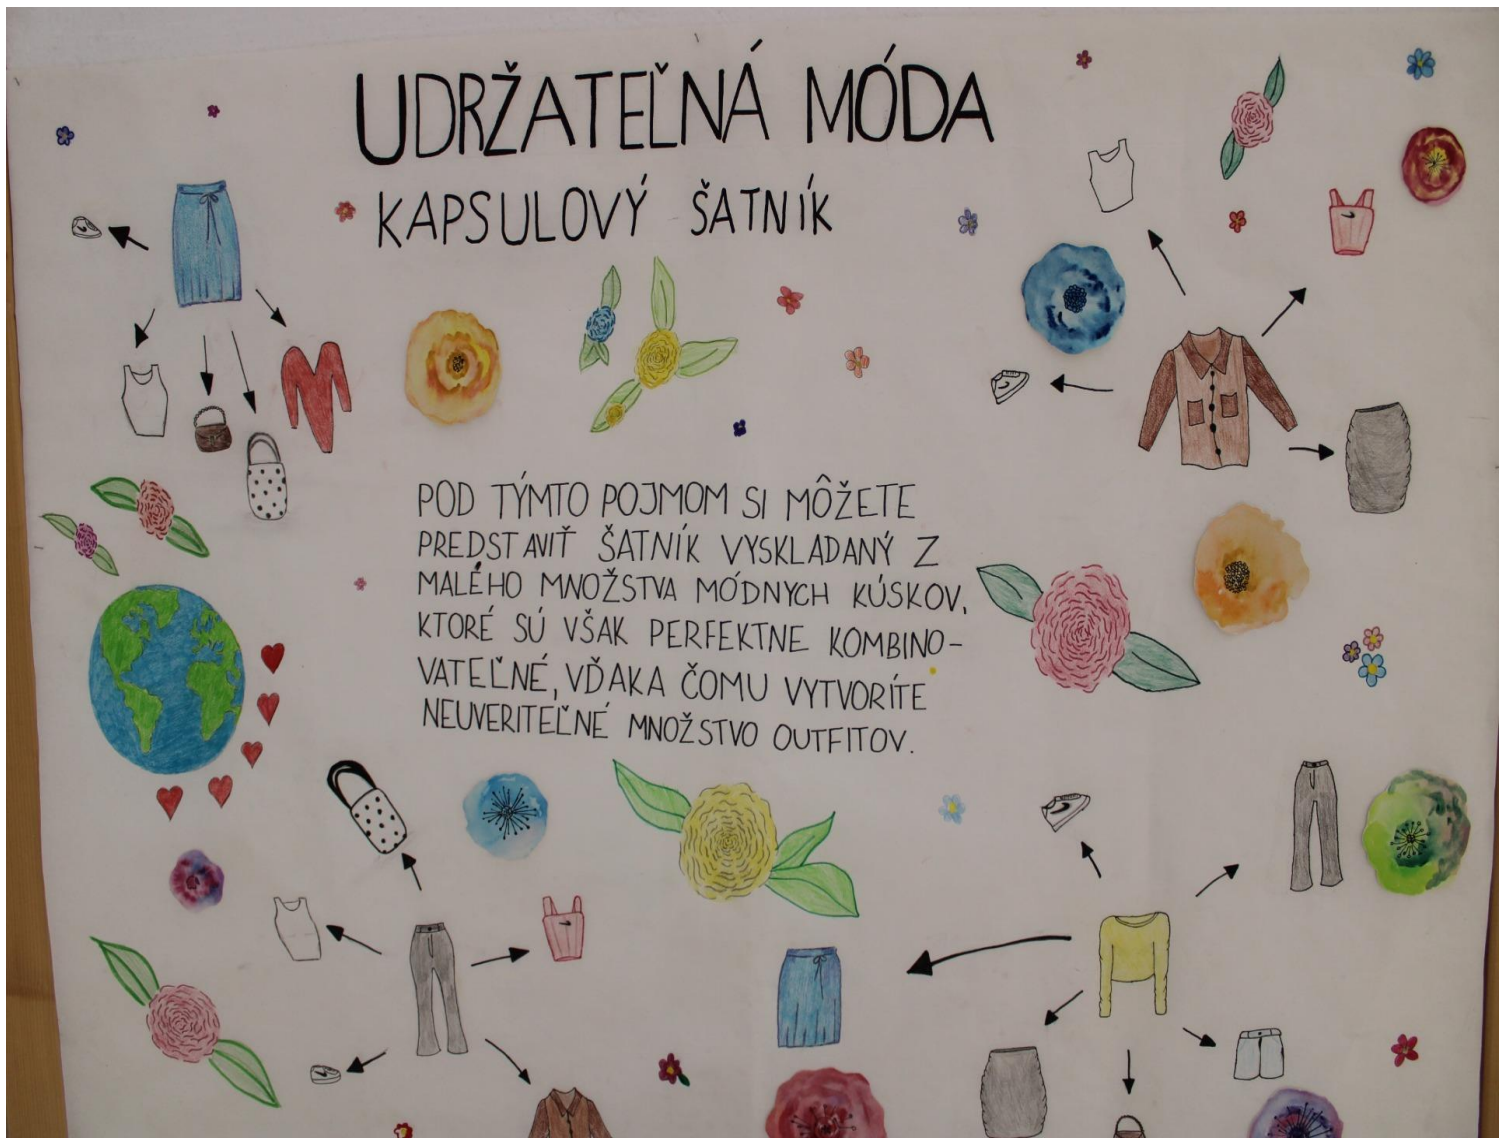 UDRŽATEĽNÁ MÓDA
KAPSULOVÝ ŠATNÍK
POD TÝMTO POJMOM SI MÔŽETE
PREDSTAVIŤ ŠATNÍK VYSKLADANÝ Z
MALÉHO MNOŽSTVA MÓDNYCH KÚSKOV,
KTORÉ SÚ VŠAK PERFEKTNE KOMBINO-
VATEĽNÉ, VĎAKA ČOMU VYTVORÍTE
NEUVERITEĽNÉ MNOŽSTVO OUTFITOV.